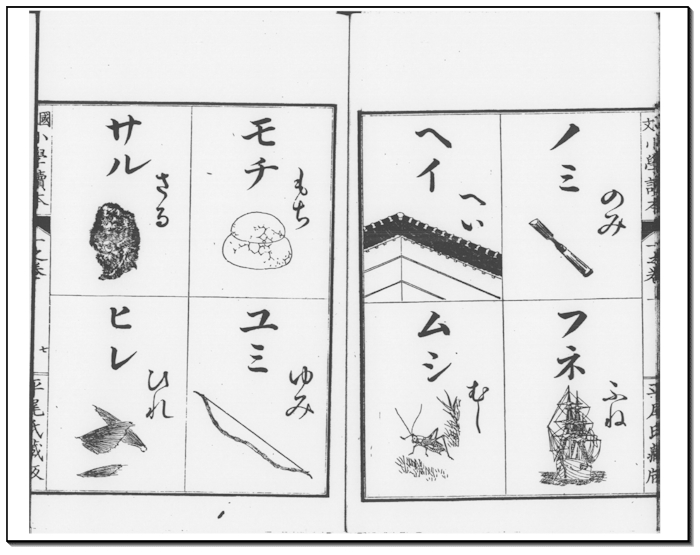 小學讀本
平尾氏藏版
ノミ
のみ
フネ
ふね
ヘイ
へい
ムシ
むし
モチ
もち
ユミ
ゆみ
サル
さる
ヒレ
ひれ
國小學讀本
七
平尾氏藏版